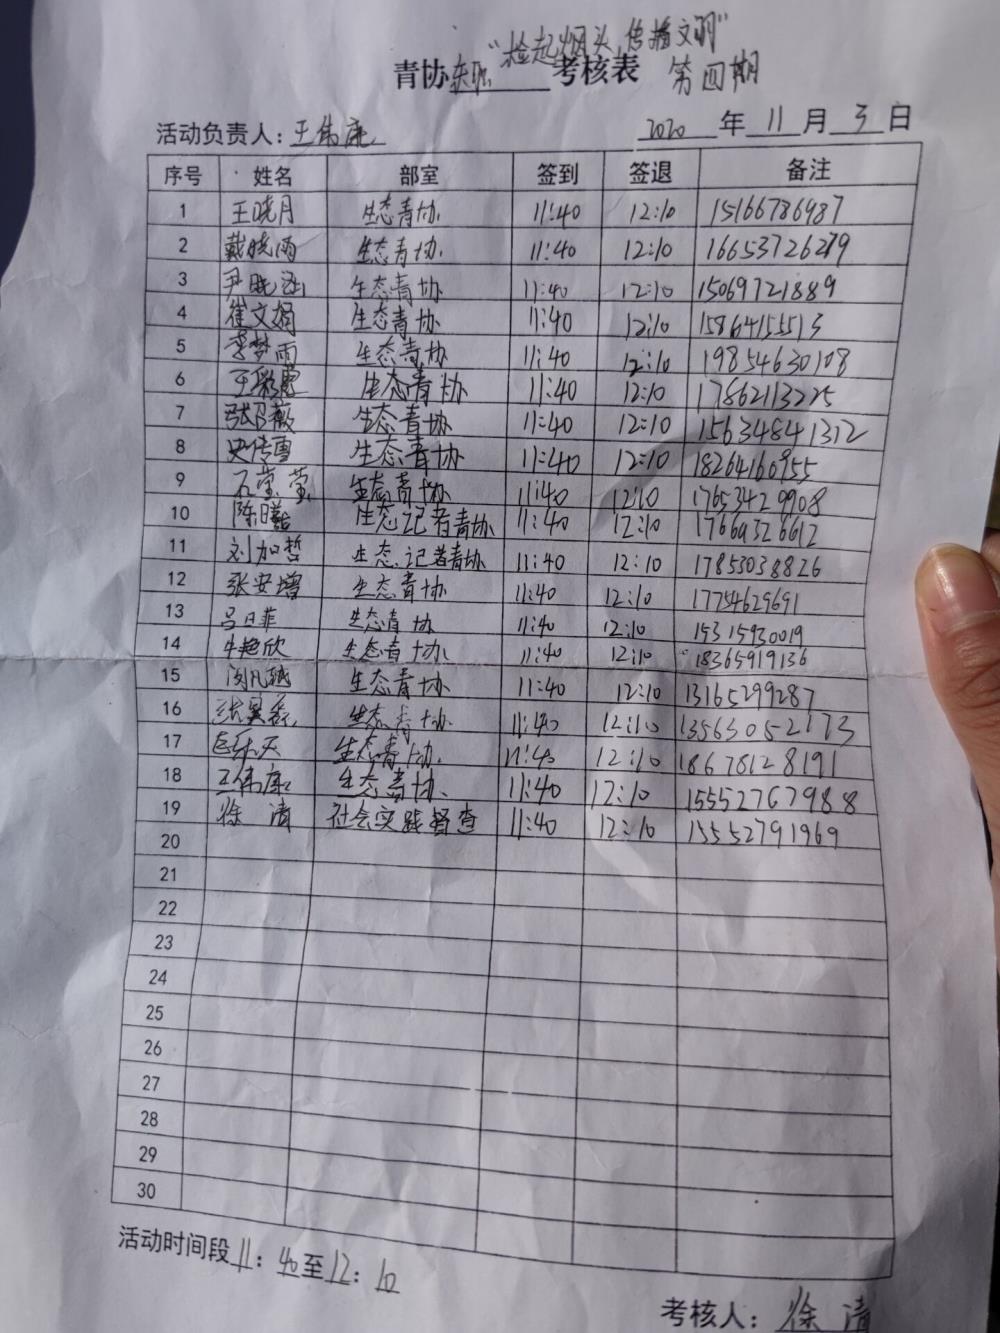 "捡起烟头,传播文明"
青协 考核表 第四期
活动负责人:王伟康 2020 年 11 月 3 日
序号 姓名 部室 签到 签退 备注
1 王晓月 生态青协 11:40 12:10 15166786987
2 戴晓雨 生态青协 11:40 12:10 16653726279
3 尹晓涵 生态青协 11:40 12:10 15069721889
4 崔文娟 生态青协 11:40 12:10 15864155513
5 李梦雨 生态青协 11:40 12:10 19854630108
6 王彩霞 生态青协 11:40 12:10 17862113225
7 张召薇 生态青协 11:40 12:10 15634841312
8 史传雪 生态青协 11:40 12:10 18264160955
9 石莹莹 生态青协 11:40 12:10 17653429908
10 陈曦 生态记者青协 11:40 12:10 17669326612
11 刘加哲 生态记者青协 11:40 12:10 17853038826
12 张安增 生态青协 11:40 12:10 17754629691
13 吕日菲 生态青协 11:40 12:10 15315930019
14 牛艳欣 生态青协 11:40 12:10 18365919136
15 生态青协 11:40 12:10 13165299287
16 生态青协 11:40 12:10 13563052173
17 生态青协 11:40 12:10 18678128191
18 王伟康 生态青协 11:40 12:10 15552767988
19 徐清 社会实践督查 11:40 12:10 15552791969
20
21
22
23
24
25
26
27
28
29
30
活动时间段 11:40 至 12:10
考核人:徐清